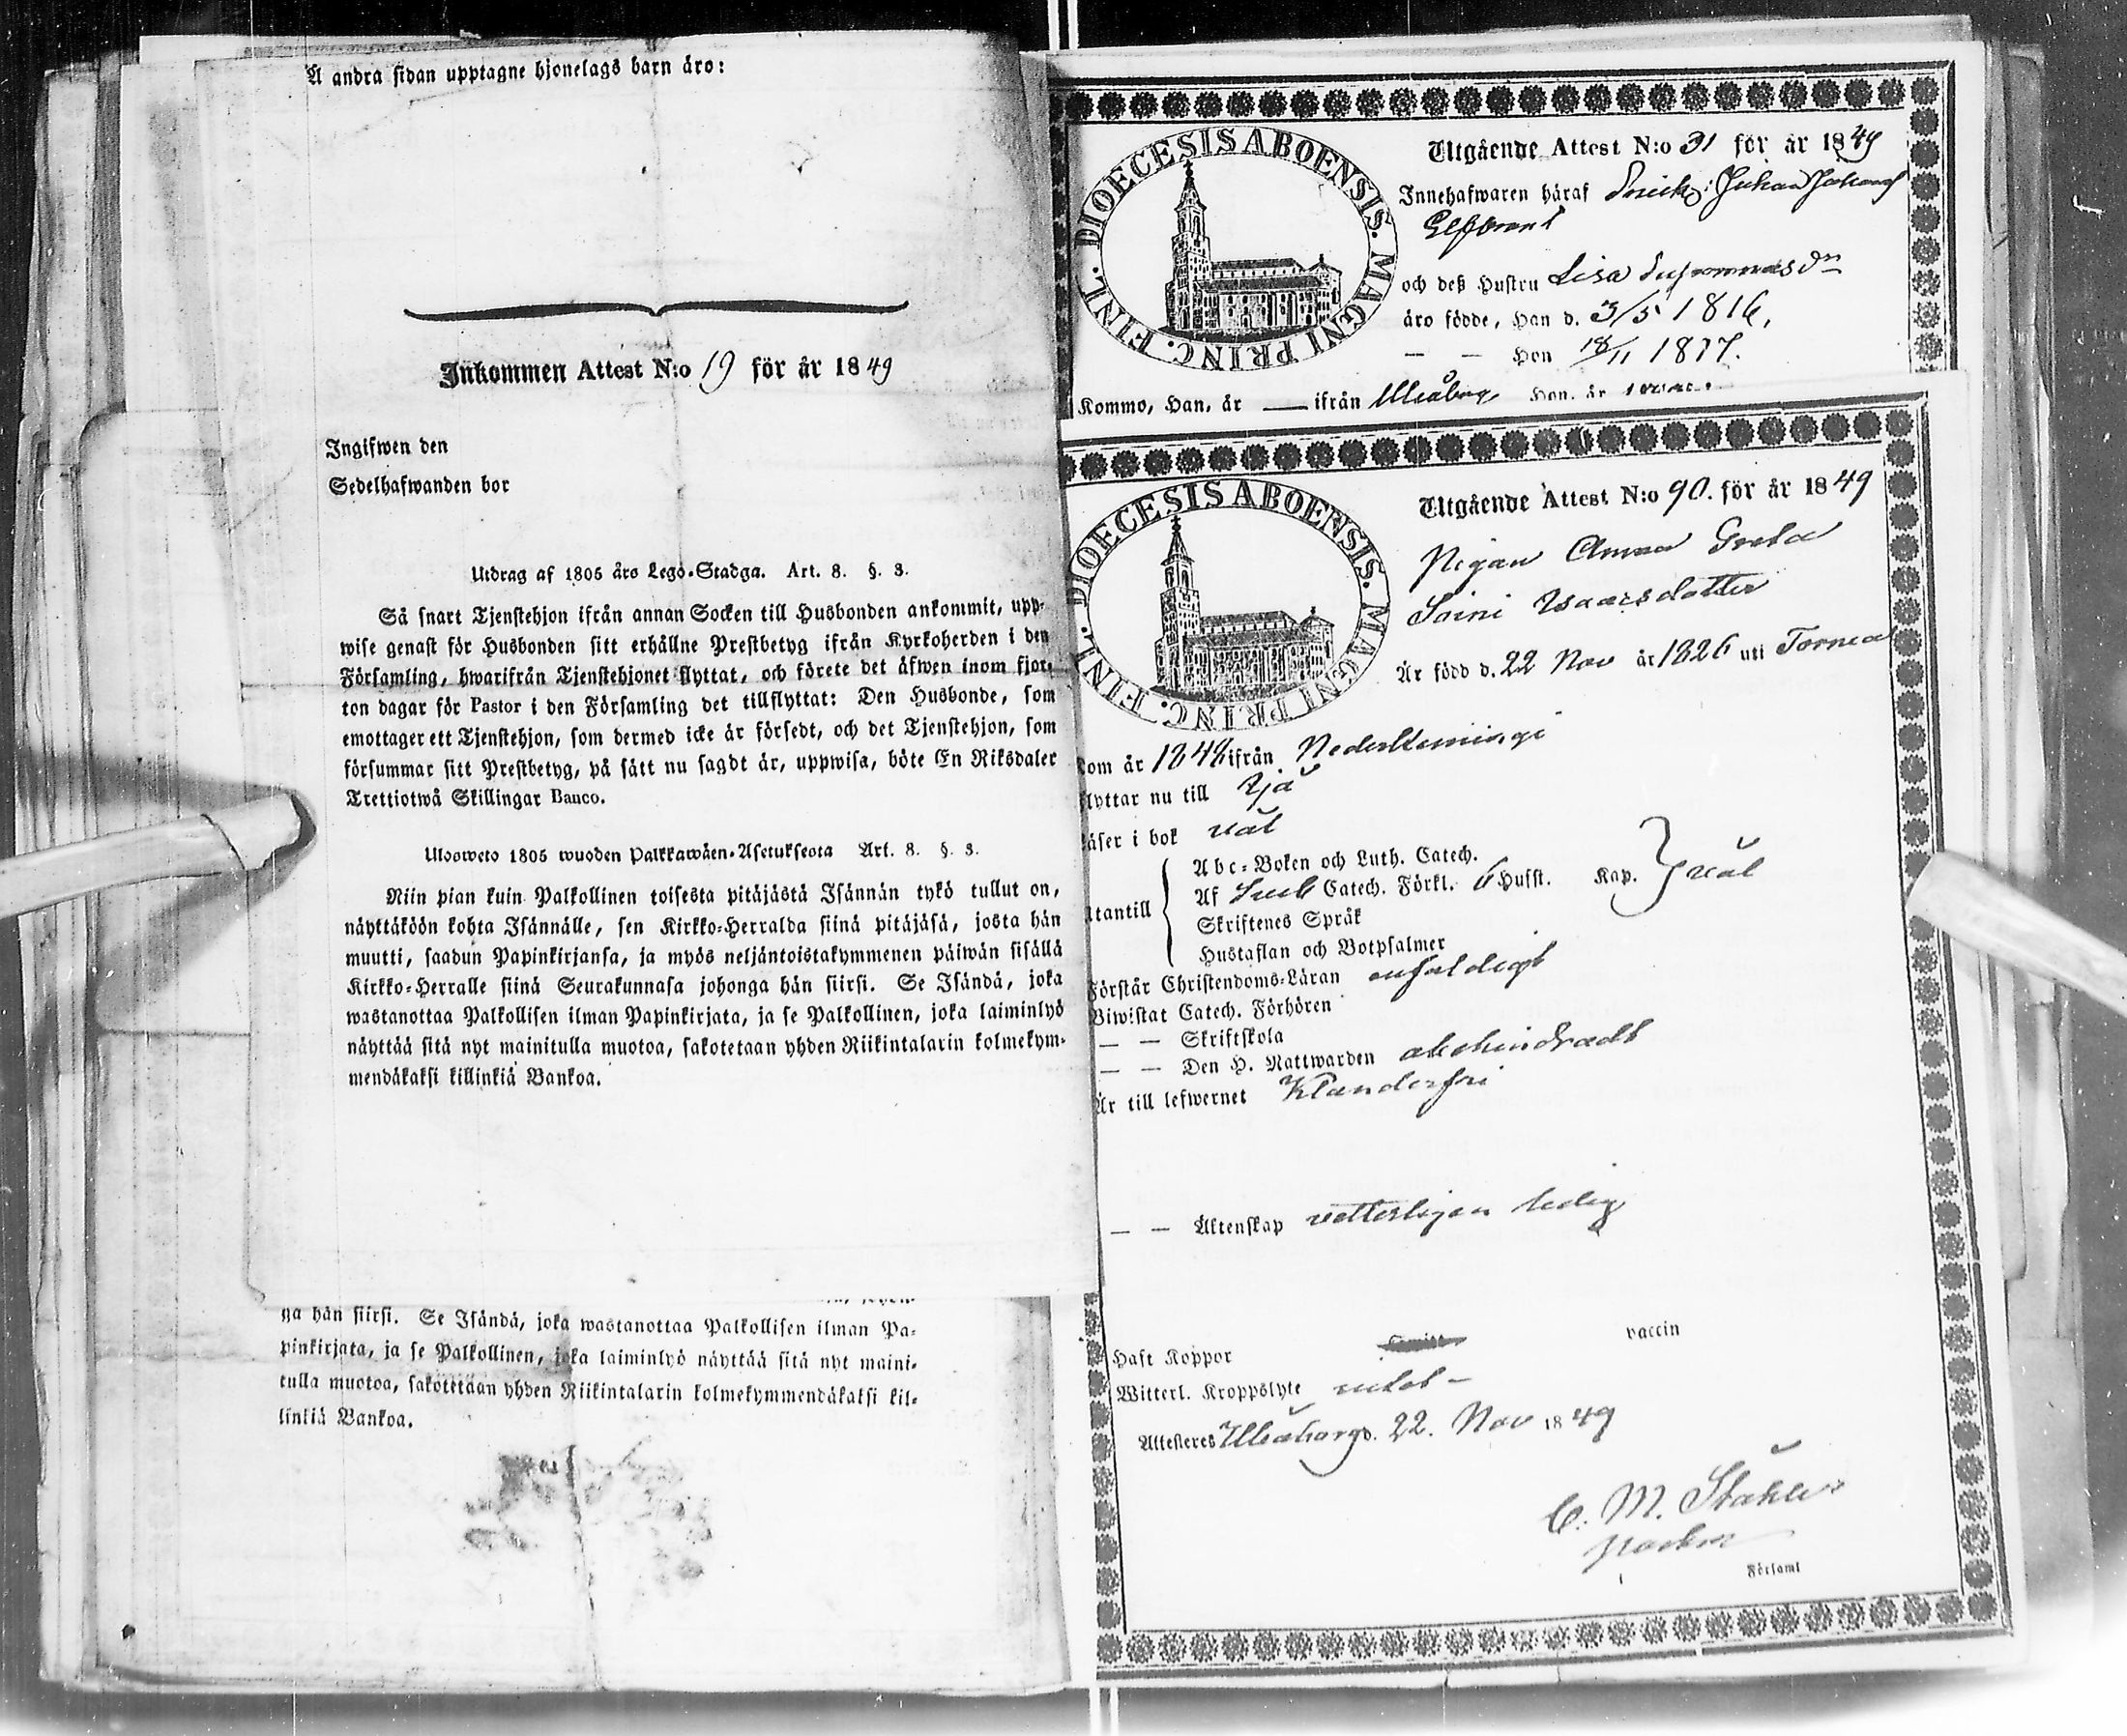 Å andra sidan upptagne hjonelags barn äro:
Inkommen Attest N:o 19 för år 1849
Ingifwen den
Sedelhafwanden bor
Utdrag af 1805 års Lego-Stadga. Art. 8. §. 3.
Så snart Tjenstehjon ifrån annan Socken till Husbonden ankommit, upp-
wise genast för Husbonden sitt erhållne Prestbetyg ifrån Kyrkoherden i den
Församling, hwarifrån Tjenstehjonet flyttat, och förete det äfwen inom fjor-
ton dagar för Pastor i den Församling det tillflyttat: Den Husbonde, som
emottager ett Tjenstehjon, som dermed icke är försedt, och det Tjenstehjon, som
försummar sitt Prestbetyg, på sätt nu sagdt är, uppwisa, böte En Riksdaler
Trettiotwå Skillingar Banco.
Ulosweto 1805 wuoden Palkkawäen-Asetuksesta Art. 8. §. 3.
Niin pian kuin Palkollinen toisesta pitäjästä Isännän tykö tullut on,
näyttäköön kohta Isännälle, sen Kirkko-Herralda siinä pitäjäsä, josta hän
muutti, saadun Papinkirjansa, ja myös neljäntoistakymmenen päiwän sisällä
Kirkko-Herralle siinä Seurakunnasa johonga hän siirsi. Se Isändä, joka
wastanottaa Palkollisen ilman Papinkirjata, ja se Palkollinen, joka laiminlyö
näyttää sitä nyt mainitulla muotoa, sakotetaan yhden Riikintalarin kolmekym-
mendäkaksi killinkiä Bankoa.
ga hän siirsi. Se Isändä, joka wastanottaa Palkollisen ilman Pa-
pinkirjata, ja se Palkollinen, joka laiminlyö näyttää sitä nyt maini-
tulla muotoa, sakotetaan yhden Riikintalarin kolmekymmendäkaksi kil-
linkiä Bankoa.
DIOECESIS ABOENSIS. MAGNI PRINC. FINL.
Utgående Attest N:o 31 för år 1849
Innehafwaren häraf Johan
och deß Hustru Lisa
äro födde, Han d. 3/5 1816,
— — Hon 18/11 1817.
Kommo, Han, år — ifrån Uleåborg Hon, år
DIOECESIS ABOENSIS. MAGNI PRINC. FINL.
Utgående Attest N:o 90. för år 1849
Pigan Anna Greta
Soini Isaacsdotter
Är född d. 22 Nov år 1826 uti Torneå
kom år 1848 ifrån Nederkiimingi
flyttar nu till Ijå
läser i bok väl
utantill
Abc-Boken och Luth. Catech.
Af Catech. Förkl. 6 Hufst. Kap. } väl
Skriftenes Språk
Hustaflan och Botpsalmer
Förstår Christendoms-Läran enfaldigt
Biwistat Catech. Förhören
— — Skriftskola
— — Den H. Nattwarden obehindradt
Är till lefwernet Klanderfri
— — Äktenskap vetterligen ledig
Haft Koppor vaccin
Witterl. Kroppslyte intet –
Attesteres Uleåborg d. 22. Nov 1849
C. M.
Pastor
Församl